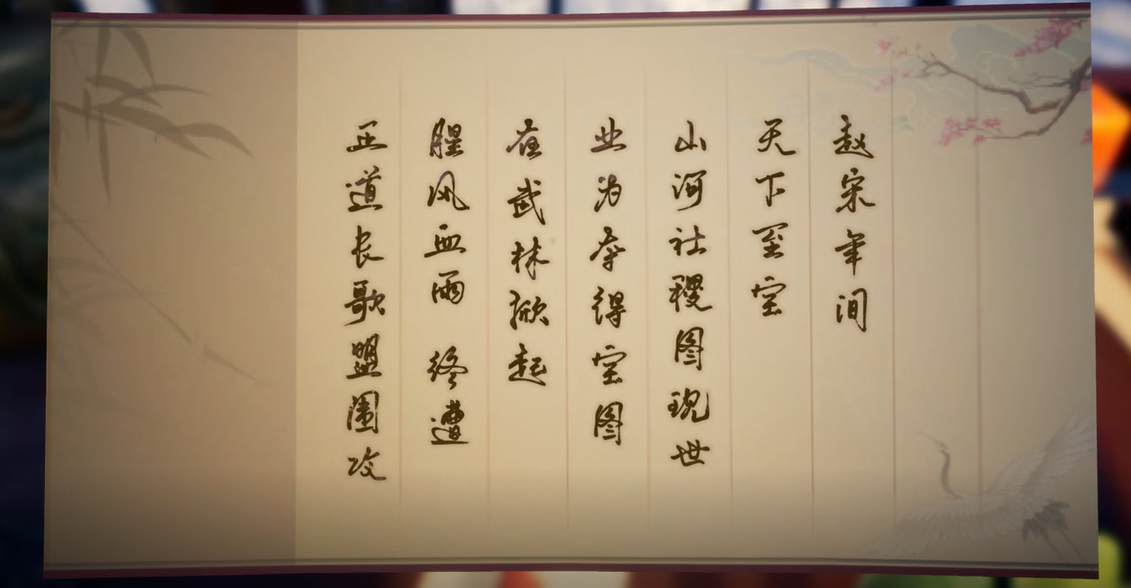 赵宋年间
天下至宝
山河社稷图现世
业为夺得宝图
在武林掀起
腥风血雨 终遭
正道长歌盟围攻